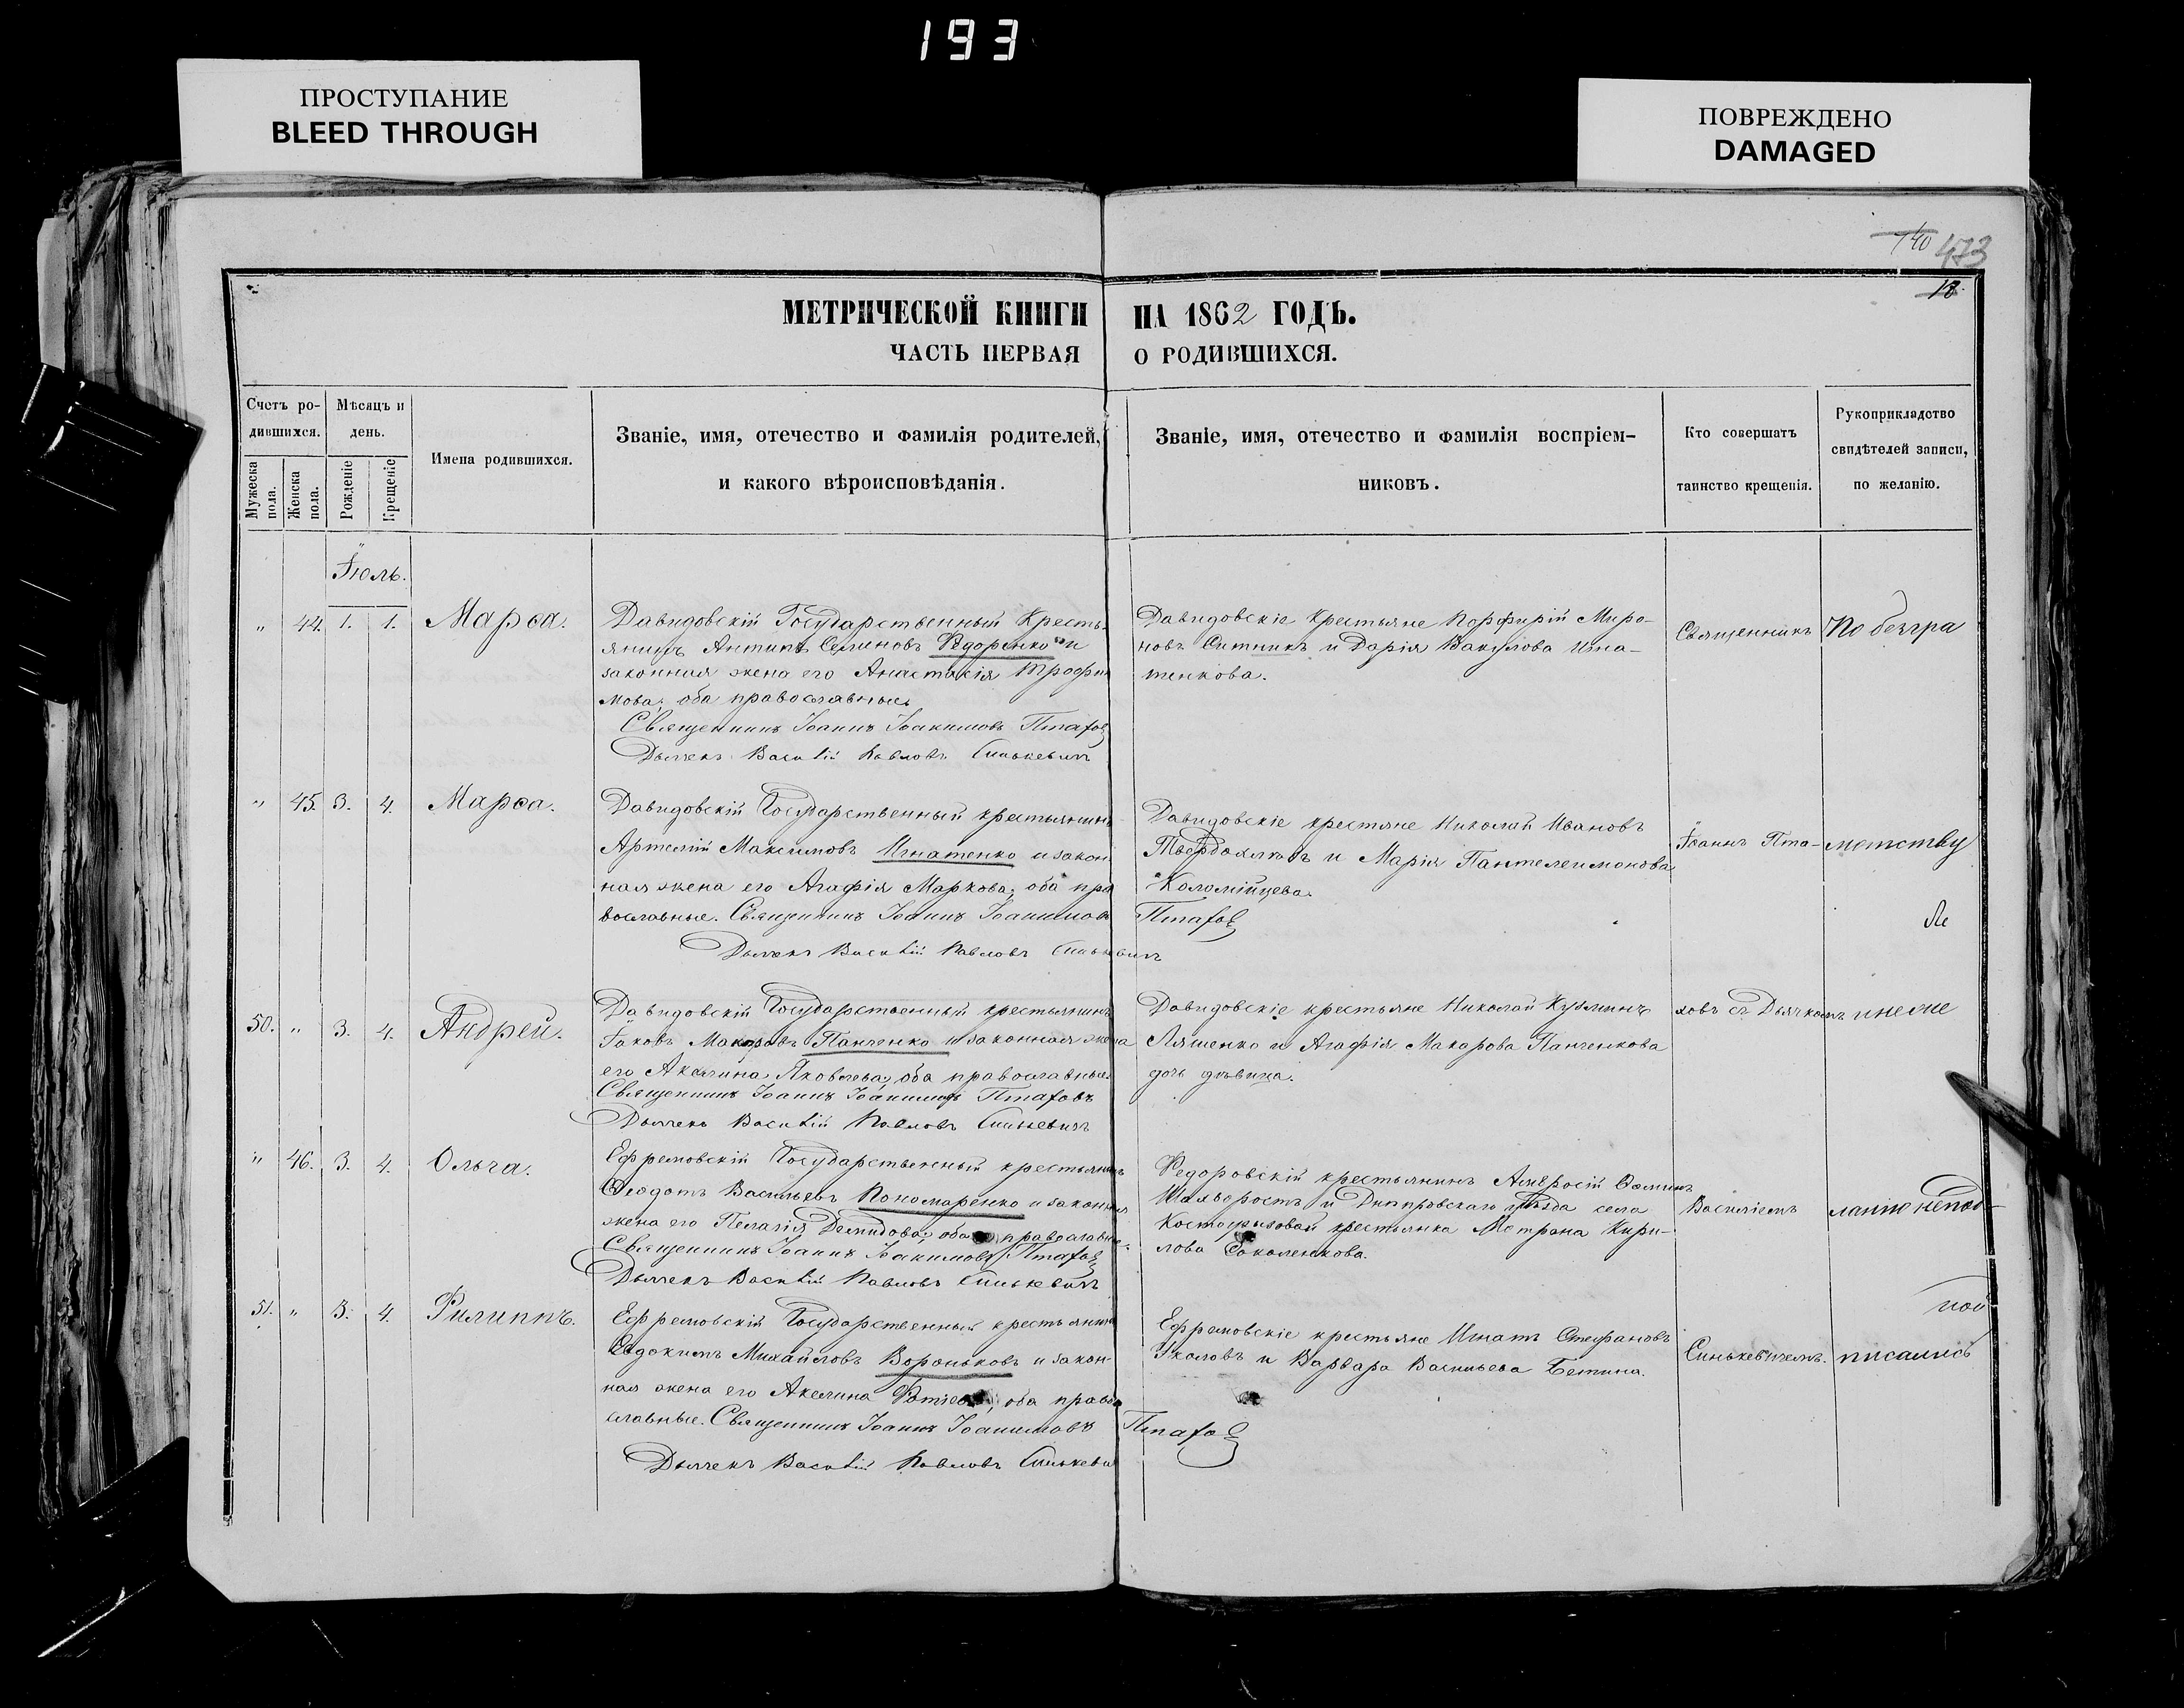 193
ПРОСТУПАНИЕ
BLEED THROUGH
ПОВРЕЖДЕНО
DAMAGED
140 473
18.
МЕТРИЧЕСКОЙ КНИГИ НА 1862 ГОДЪ.
ЧАСТЬ ПЕРВАЯ О РОДИВШИХСЯ.
Счетъ ро-
дившихся.
Мужеска пола.
Женска пола.
Мѣсяцъ и
день.
Рожденіе
Крещеніе
Имена родившихся.
Званіе, имя, отечество и фамилія родителей,
и какого вѣроисповѣданія.
Званіе, имя, отечество и фамилія воспріем-
никовъ.
Кто совершатъ
таинство крещенія.
Рукоприкладство
свидѣтелей записи,
по желанію.
Іюль.
" 44. 1. 1. Марѳа.
Давидовскій Государственный Кресть-
янинъ Антипъ Семиновъ Ѳедоренко и
законная жена его Анастасія Трофи
мова, оба православные
Священникъ Іоаннъ Іоакимовъ Птаховъ
Дьячекъ Василій Павловъ Синькевичъ
Давидовскіе Крестьяне Порфирій Миро-
новъ Ситникъ и Дарія Вакулова Игна-
тенкова.
Священникъ
По безгра
" 45. 3. 4. Марѳа.
Давидовскій Государственный крестьянинъ
Артемій Максимовъ Игнатенко и закон
ная жена его Агафія Маркова, оба пра
вославные. Священникъ Іоаннъ Іоакимовъ Птаховъ
Дьячекъ Василій Павловъ Синькевичъ
Давидовскіе крестяне Николай Ивановъ
и Марія Пантелеимонова
Коломійцева.
Іоаннъ Пта-
мотству
50. " 3. 4. Андрей.
Давидовскій Государственный крестьянинъ
Іаковъ Макаровъ Панченко и законная жена
его Акилина Яковлева, оба православные
Священникъ Іоаннъ Іоакимовъ Птаховъ
Дьячекъ Василій Павловъ Синькевичъ
Давидовскіе крестьяне Николай Кузминъ
Ляшенко и Агафія Макарова Панченкова
дочь дѣвица.
ховъ съ Дьячкомъ
и неже
" 46. 3. 4. Ольга.
Ефремовскій Государственный крестьянинъ
Ѳеодотъ Васильевъ Пономаренко и законная
жена его Пелагія Демидова, оба православные.
Священникъ Іоаннъ Іоакимовъ Птаховъ
Дьячекъ Василій Павловъ Синькевичъ
Федоровскій крестьянинъ Амвросій Ѳоминъ
и Днѣпровскаго уѣзда села
крестьянка Матрона Кири-
лова Соколенкова.
Василіемъ
ланію непод-
51. " 3. 4. Филиппъ.
Ефремовскій Государственный крестьянинъ
Евдокимъ Михайловъ Вороньковъ и закон-
ная жена его Акилина оба право
славные. Священникъ Іоаннъ Іоакимовъ Птаховъ
Дьячекъ Василій Павловъ Синькевичъ
Ефремовскіе крестьяне Игнатъ Стефановъ
Укаловъ и Варвара Васильева Бетина.
Синькевичемъ.
писались